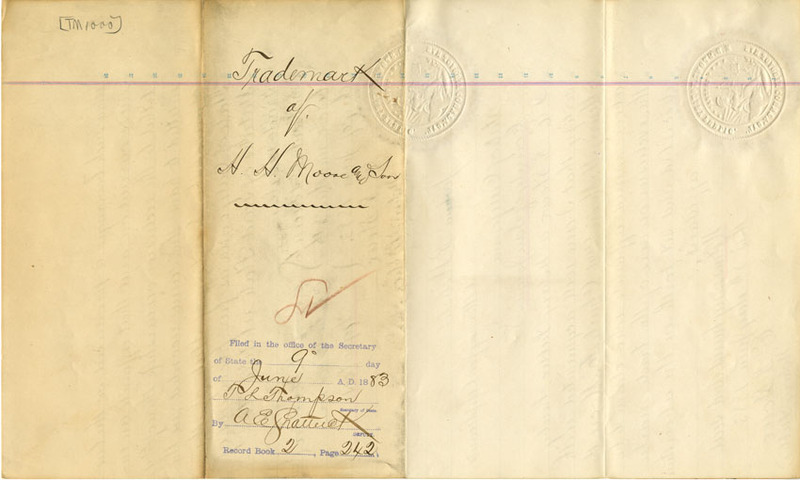 [TM1000]
Trademark
of
H. H. Moore and Son
Filed in the office of the Secretary
of State the 9" day
of June A. D. 1883
T L Thompson
Secretary of State
By A E Shattuck
DEPUTY
Record Book 2, Page 242